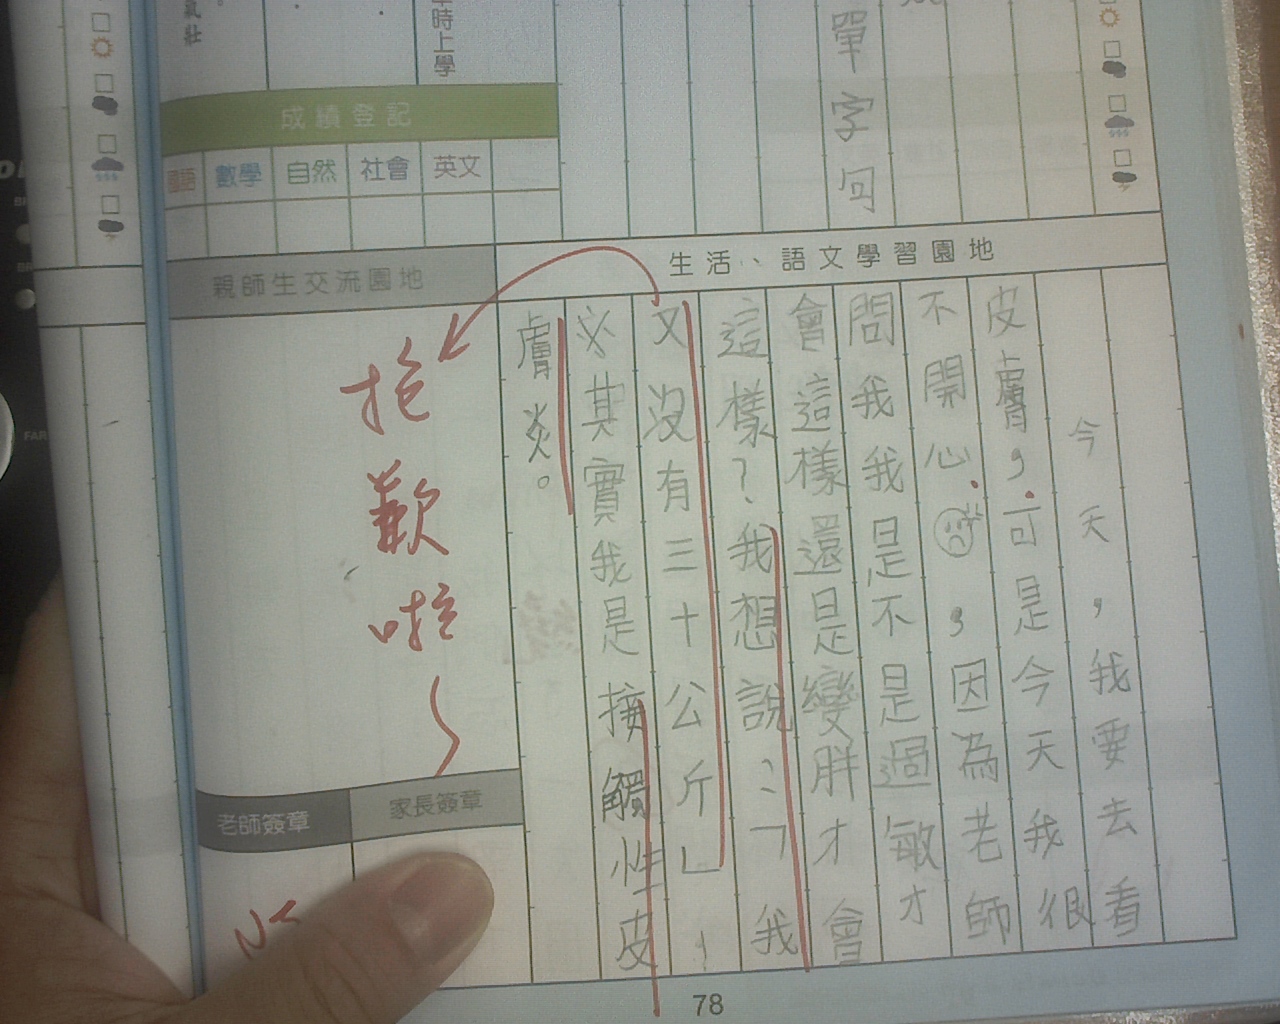 氣壯
時上學
單字回
成績登記
國語 數學 自然 社會 英文
生活、語文學習園地
今天,我要去看
皮膚,可是今天我很
不開心,因為老師
問我我是不是過敏才
會這樣還是變胖才會
這樣?我想說:「我
又沒有三十公斤」,
其實我是接觸性皮
膚炎。
親師生交流園地
抱歉啦~
老師簽章
家長簽章
78
FAR